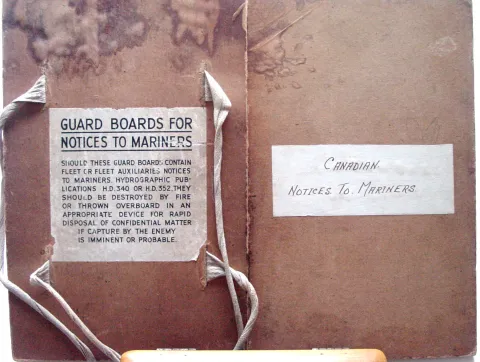 GUARD BOARDS FOR
NOTICES TO MARINERS
SHOULD THESE GUARD BOARDS CONTAIN
FLEET OR FLEET AUXILIARIES NOTICES
TO MARINERS, HYDROGRAPHIC PUB-
LICATIONS H.D. 340 OR H.D. 352, THEY
SHOULD BE DESTROYED BY FIRE
OR THROWN OVERBOARD IN AN
APPROPRIATE DEVICE FOR RAPID
DISPOSAL OF CONFIDENTIAL MATTER
IF CAPTURE BY THE ENEMY
IS IMMINENT OR PROBABLE.
CANADIAN
NOTICES TO MARINERS